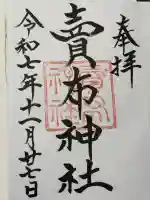 奉拝
賣布神社
令和七年十一月廿七日